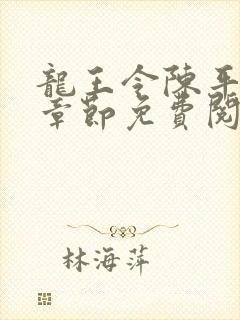 龍王令陳平
章節免費閱
林海萍